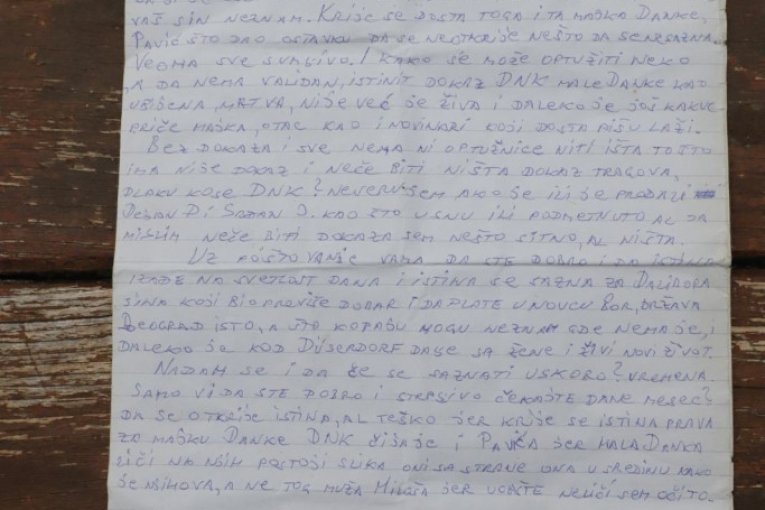 VAŠ SIN NEZNAM. KRIJE SE DOSTA TOGA I TA MAJKA DANKE,
PAVIĆ ŠTO DAO OSTAVKU DA SE NEOTKRIJE NEŠTO DA SENESAZNA.
VEOMA SVE SUMJIVO. I KAKO SE MOŽE OPTUŽITI NEKO
A DA NEMA VALIDAN, ISTINIT DOKAZ DNK MALE DANKE KAO
UBIJENA, MRTVA, NIJE VEĆ JE ŽIVA I DALEKO JE JOŠ KAKVE
PRIČE MAJKA, OTAC KAO I NOVINARI KOJI DOSTA PIŠU LAŽI.
BEZ DOKAZA I SVE NEMA NI OPTUŽNICE NITI IŠTA TO ŠTO
IMA NIJE DOKAZ I NEĆE BITI NIŠTA DOKAZ TRAGOVA,
DLAKU KOSE DNK? NEVERUJEM AKO JE ILI JE PRODALI
DEJAN D I SRĐAN J. KAO ŠTO USNU ILI PODMETNUTO AL JA
MISLIM NEĆE BITI DOKAZA SEM NEŠTO SITNO, AL NIŠTA.
UZ POŠTOVANJE VAMA DA STE DOBRO I DA ISTINA
IZAĐE NA SVETLOST DANA I ISTINA SE SAZNA ZA DALIBORA
SINA KOJI BIO PREVIŠE DOBAR I DA PLATE U NOVCU BOR, DRŽAVA
BEOGRAD ISTO, A ŠTO KOPAJU MOGU NEZNAM GDE NEMA JE, I
DALEKO JE KOD DIJSERDORF DALJE SA ŽENE I ŽIVI NOVI ŽIVOT.
NADAM SE I DA ĆE SE SAZNATI USKORO? VREMENA.
SAMO VI DA STE DOBRO I STRPJIVO ČEKAJTE DANE MESEC?
DA SE OTKRIJE ISTINA, AL TEŠKO JER KRIJE SE ISTINA PRAVA
ZA MAJKU DANKE DNK ČIJA JE I PAVIĆA JER MALA DANKA
LIČI NA NJIH POSTOJI SLIKA ONI SA STRANE ONA U SREDINU KAKO
JE NJIHOVA, A NE TOG MUŽA MILOŠA JER UOPŠTE NELIČI SEM OČITO.